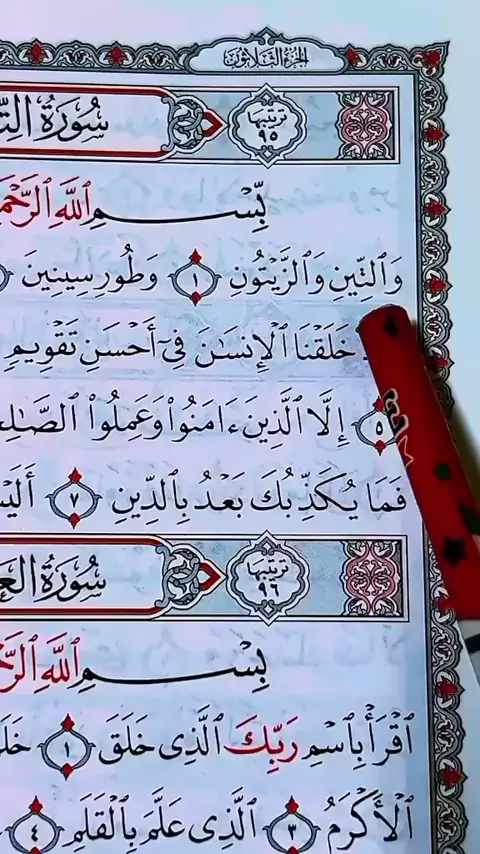 الجزء الثلاثون
سُورَةُ
ترتيبها ٩٥
بِّسْمِ ٱللَّهِ
وَٱلتِّينِ وَٱلزَّيْتُونِ ١ وَطُورِ سِينِينَ
خَلَقْنَا ٱلْإِنسَٰنَ فِىٓ أَحْسَنِ تَقْوِيمٍ
٥ إِلَّا ٱلَّذِينَ ءَامَنُوا۟ وَعَمِلُوا۟
فَمَا يُكَذِّبُكَ بَعْدُ بِٱلدِّينِ ٧
سُورَةُ
ترتيبها ٩٦
بِسْمِ ٱللَّهِ
ٱقْرَأْ بِٱسْمِ رَبِّكَ ٱلَّذِى خَلَقَ ١
ٱلْأَكْرَمُ ٣ ٱلَّذِى عَلَّمَ بِٱلْقَلَمِ ٤